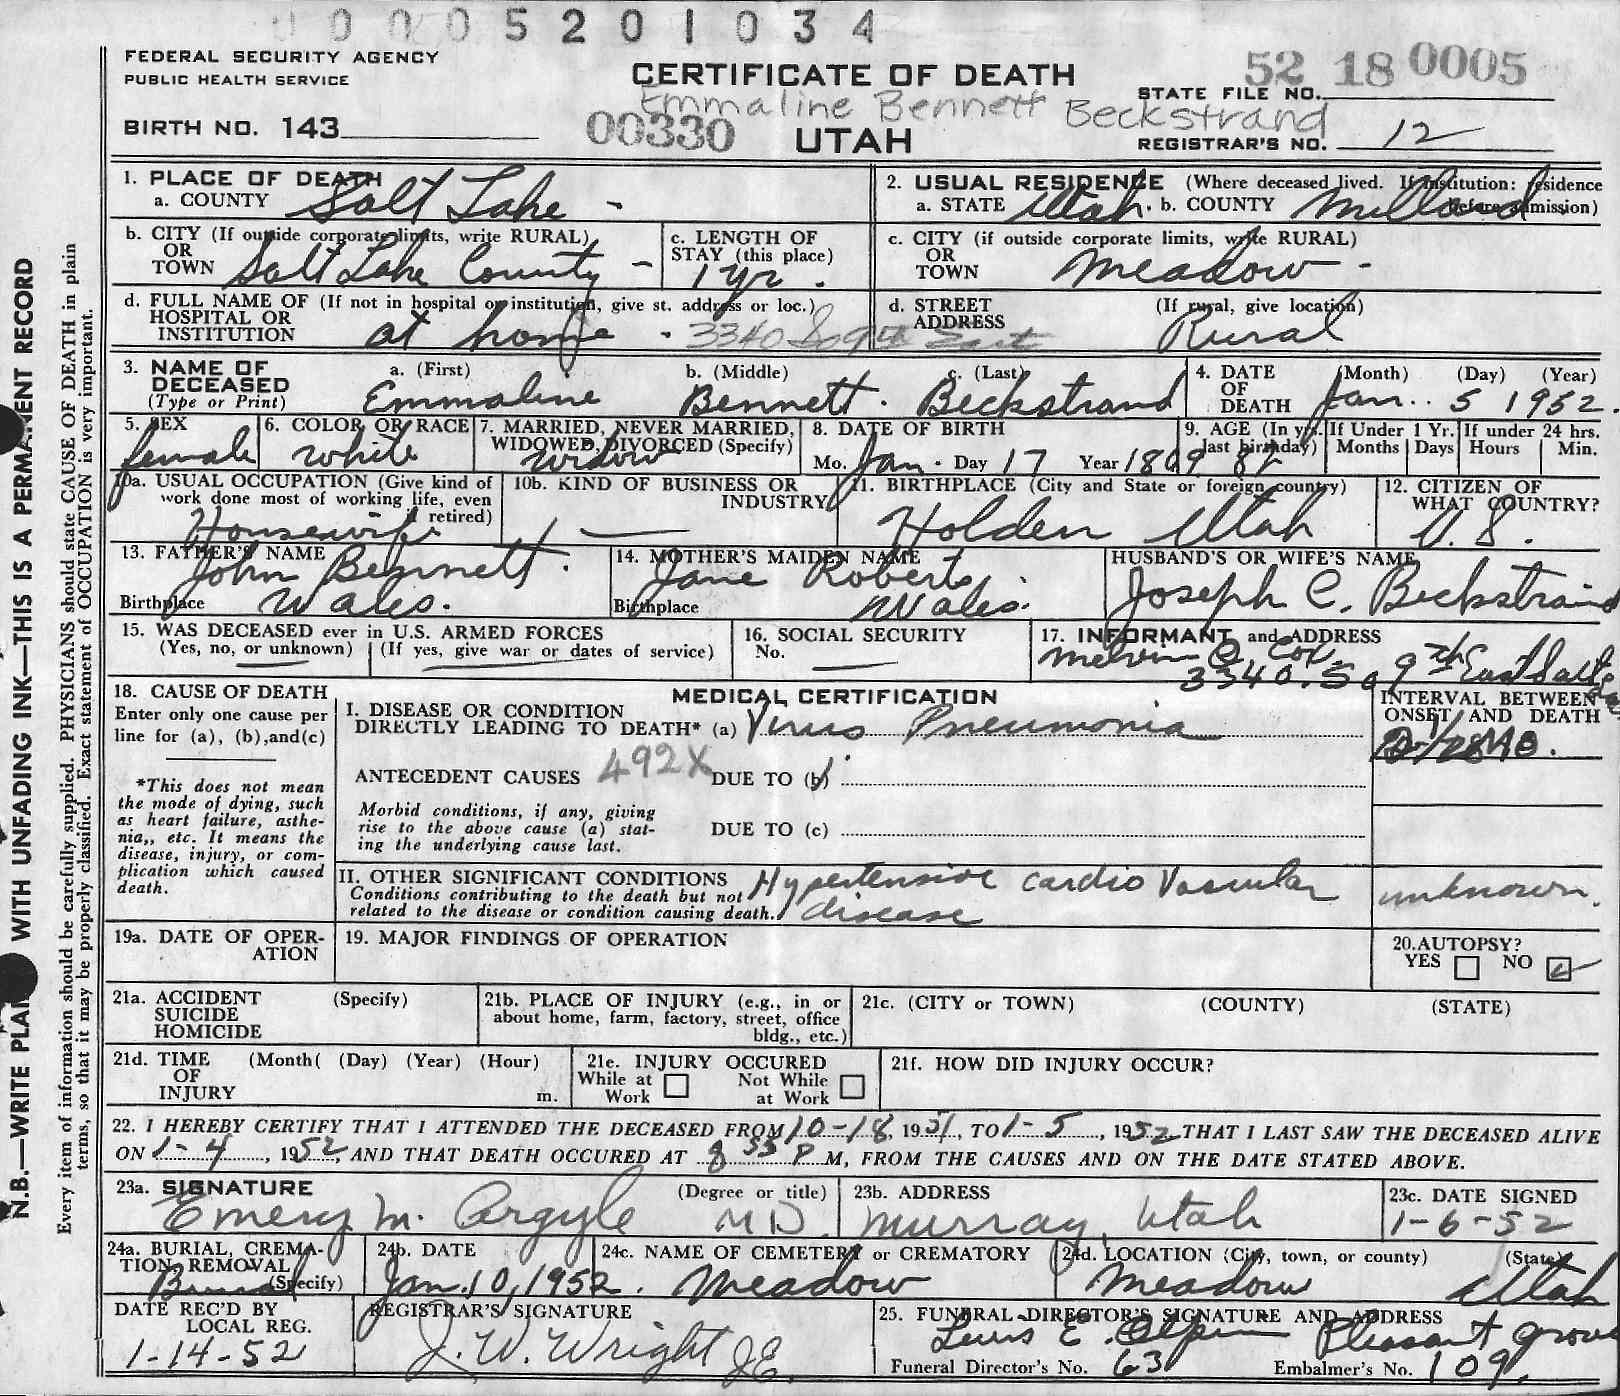 0 0 0 0 5 2 0 1 0 3 4
FEDERAL SECURITY AGENCY
PUBLIC HEALTH SERVICE
CERTIFICATE OF DEATH
52 18 0005
STATE FILE NO.
Emmaline Bennett Beckstrand
BIRTH NO. 143
00330
UTAH
REGISTRAR'S NO. 12
1. PLACE OF DEATH
a. COUNTY Salt Lake -
2. USUAL RESIDENCE (Where deceased lived. If institution: residence before admission)
a. STATE Utah. b. COUNTY Millard
b. CITY (If outside corporate limits, write RURAL)
OR
TOWN Salt Lake County -
c. LENGTH OF
STAY (this place)
1 yr.
c. CITY (if outside corporate limits, write RURAL)
OR
TOWN Meadow -
d. FULL NAME OF (If not in hospital or institution, give st. address or loc.)
HOSPITAL OR
INSTITUTION at home - 3340 So 9th East
d. STREET
ADDRESS
(If rural, give location)
Rural
3. NAME OF
DECEASED
(Type or Print)
a. (First)
b. (Middle)
c. (Last)
Emmaline Bennett. Beckstrand
4. DATE
OF
DEATH
(Month) (Day) (Year)
Jan.. 5 1952.
5. SEX
female
6. COLOR OR RACE
white
7. MARRIED, NEVER MARRIED,
WIDOWED, DIVORCED (Specify)
Widow
8. DATE OF BIRTH
Mo. Jan. Day 17 Year 1869
9. AGE (In yrs.
last birthday)
82
If Under 1 Yr.
Months Days
If under 24 hrs.
Hours Min.
10a. USUAL OCCUPATION (Give kind of
work done most of working life, even
if retired)
Housewife
10b. KIND OF BUSINESS OR
INDUSTRY
11. BIRTHPLACE (City and State or foreign country)
Holden Utah
12. CITIZEN OF
WHAT COUNTRY?
U.S.
13. FATHER'S NAME
John Bennett.
Birthplace Wales.
14. MOTHER'S MAIDEN NAME
Jane Roberts
Birthplace Wales.
HUSBAND'S OR WIFE'S NAME
Joseph C. Beckstrand
15. WAS DECEASED ever in U.S. ARMED FORCES
(Yes, no, or unknown) (If yes, give war or dates of service)
16. SOCIAL SECURITY
No.
17. INFORMANT and ADDRESS
Melvin C. Cox.
3340. So 9th East Salt
18. CAUSE OF DEATH
Enter only one cause per
line for (a), (b),and(c)
*This does not mean
the mode of dying, such
as heart failure, asthe-
nia,, etc. It means the
disease, injury, or com-
plication which caused
death.
MEDICAL CERTIFICATION
I. DISEASE OR CONDITION
DIRECTLY LEADING TO DEATH* (a) Virus Pneumonia
INTERVAL BETWEEN
ONSET AND DEATH
ANTECEDENT CAUSES 492X DUE TO (b)
Morbid conditions, if any, giving
rise to the above cause (a) stat-
ing the underlying cause last.
DUE TO (c)
II. OTHER SIGNIFICANT CONDITIONS
Conditions contributing to the death but not
related to the disease or condition causing death.
Hypertensive cardio Vascular
disease
unknown.
19a. DATE OF OPER-
ATION
19. MAJOR FINDINGS OF OPERATION
20. AUTOPSY?
YES NO
21a. ACCIDENT (Specify)
SUICIDE
HOMICIDE
21b. PLACE OF INJURY (e.g., in or
about home, farm, factory, street, office
bldg., etc.)
21c. (CITY or TOWN) (COUNTY) (STATE)
21d. TIME (Month( (Day) (Year) (Hour)
OF
INJURY m.
21e. INJURY OCCURED
While at Work
Not While at Work
21f. HOW DID INJURY OCCUR?
22. I HEREBY CERTIFY THAT I ATTENDED THE DECEASED FROM 10-18, 1951, TO 1-5, 1952 THAT I LAST SAW THE DECEASED ALIVE
ON 1-4, 1952, AND THAT DEATH OCCURED AT 8 55 P M, FROM THE CAUSES AND ON THE DATE STATED ABOVE.
23a. SIGNATURE (Degree or title)
Emery M. Argyle MD
23b. ADDRESS
Murray, Utah
23c. DATE SIGNED
1-6-52
24a. BURIAL, CREMA-
TION, REMOVAL
(Specify)
Burial
24b. DATE
Jan. 10, 1952.
24c. NAME OF CEMETERY or CREMATORY
Meadow
24d. LOCATION (City, town, or county) (State)
Meadow Utah
DATE REC'D BY
LOCAL REG.
1-14-52
REGISTRAR'S SIGNATURE
J. W. Wright JE.
25. FUNERAL DIRECTOR'S SIGNATURE AND ADDRESS
Lewis E. Olpin Pleasant Grove
Funeral Director's No. 63 Embalmer's No. 109.
N.B.—WRITE PLAINLY WITH UNFADING INK—THIS IS A PERMANENT RECORD
Every item of information should be carefully supplied. PHYSICIANS should state CAUSE OF DEATH in plain
terms, so that it may be properly classified. Exact statement of OCCUPATION is very important.